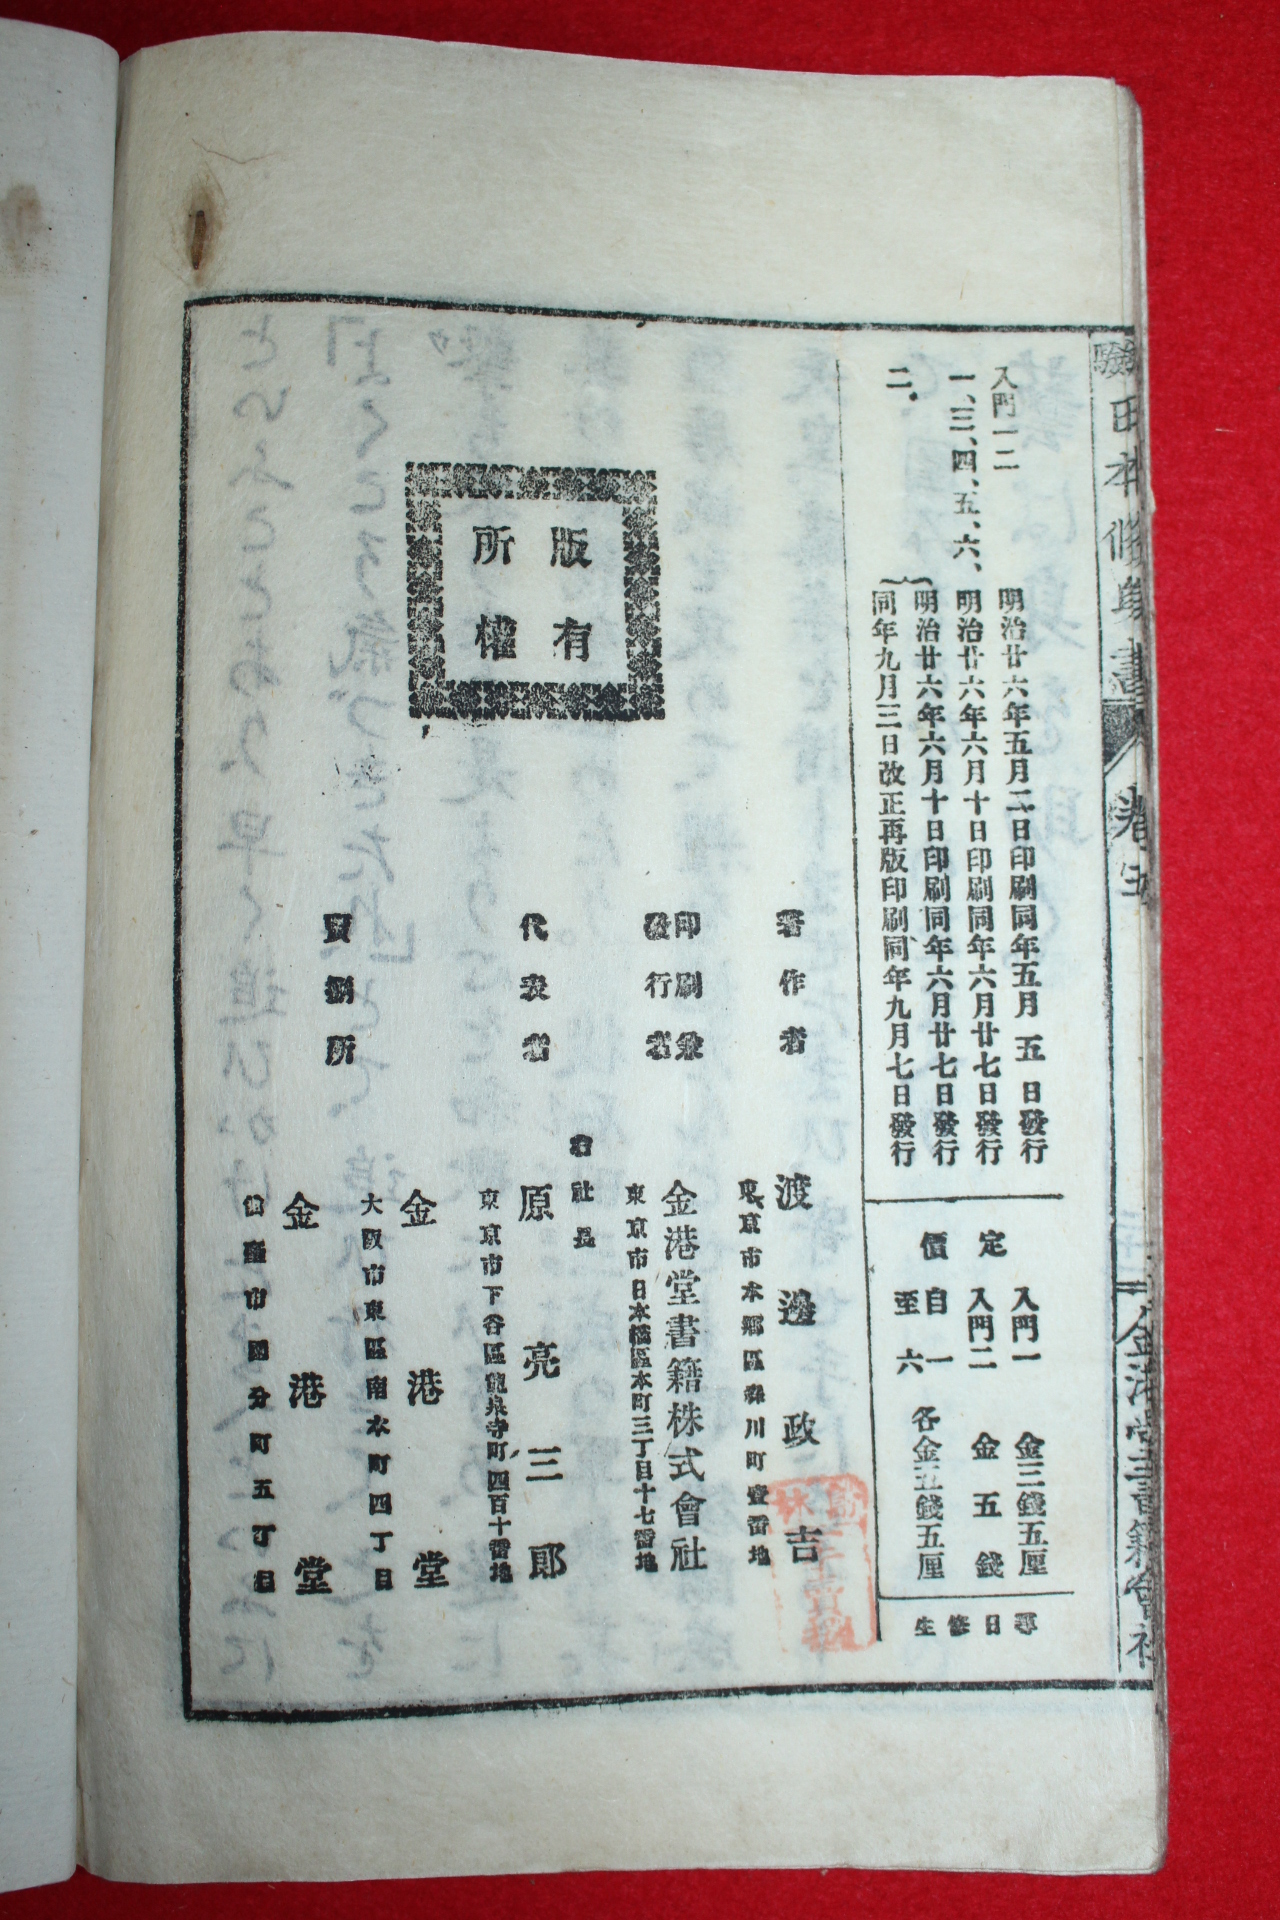 日本修身書 卷五
金港堂書籍會社
入門一二 明治廿六年五月二日印刷同年五月五日發行
一、三、四、五、六、 明治廿六年六月十日印刷同年六月廿七日發行
二、 明治廿六年六月十日印刷同年六月廿七日發行
同年九月三日改正再版印刷同年九月七日發行
定價
入門一 金三錢五厘
入門二 金五錢
自一
至六
各金五錢五厘
尋日修生
版有
所權
著作者
東京市本鄕區森川町壹番地
渡邊政吉
印刷兼
發行者
金港堂書籍株式會社
東京市日本橋區本町三丁目十七番地
代表者
右社長
原亮三郎
東京市下谷區龍泉寺町四百十番地
賣捌所
金港堂
大阪市東區南本町四丁目
金港堂
仙臺市國分町五丁目